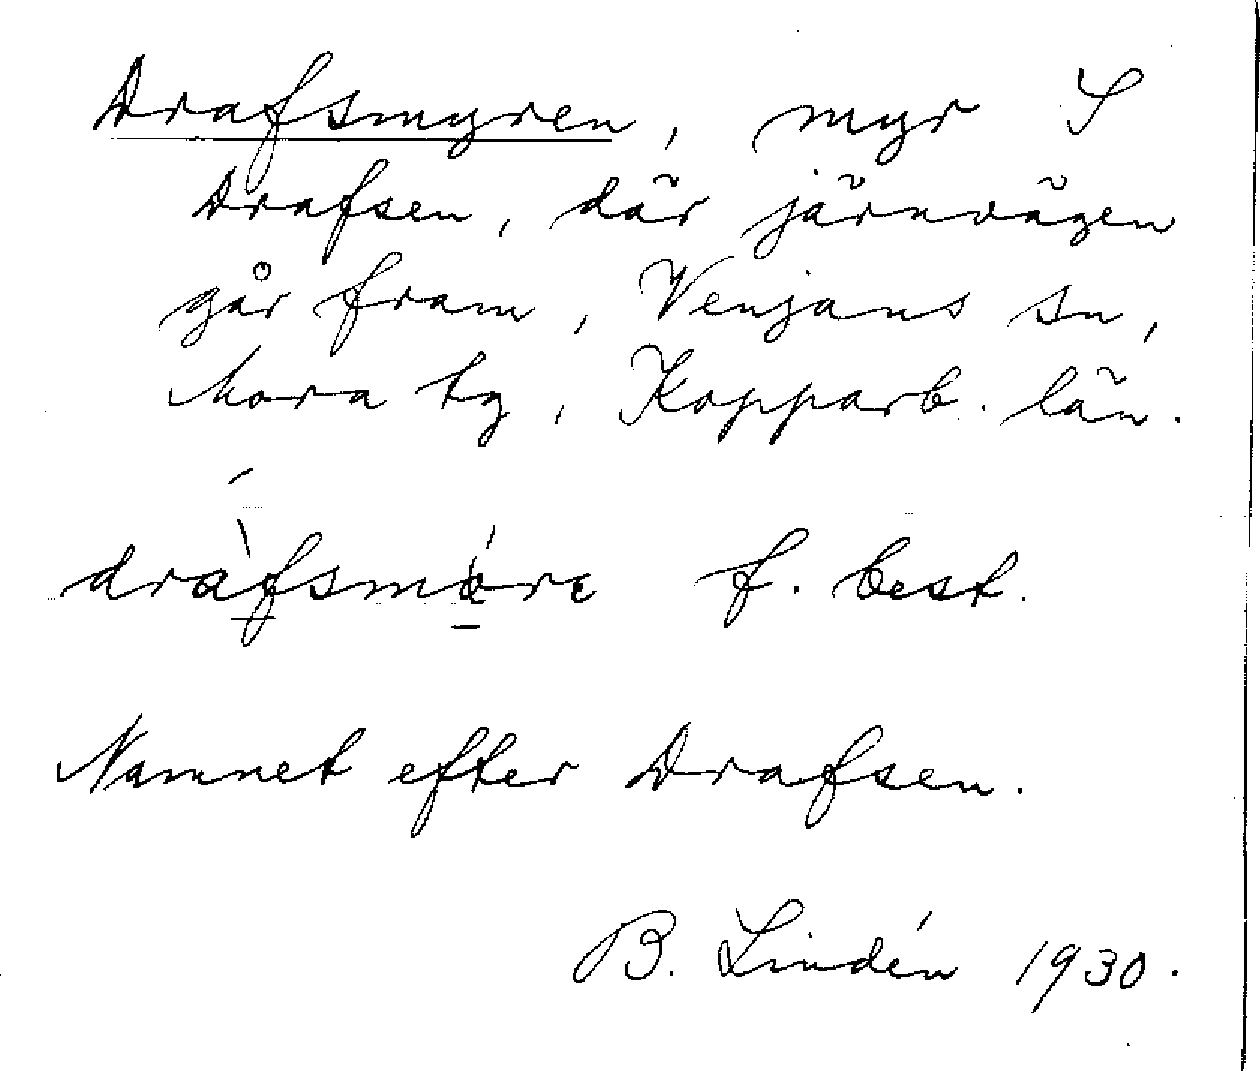 Drafsmyren, myr S
Drafsen, där järnvägen
går fram, Venjans sn,
Mora tg, Kopparb. län.
dràfsmøre f. best.
Namnet efter Drafsen.
B. Lindén 1930.